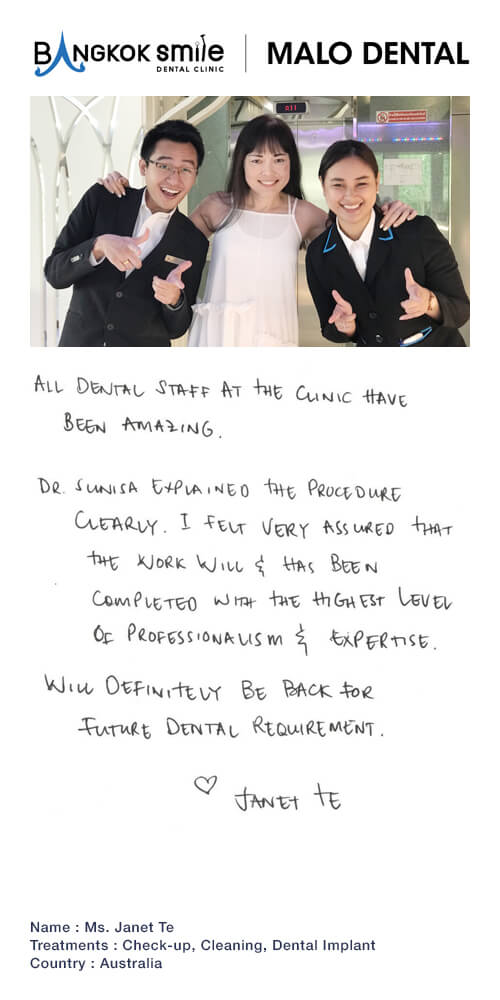 BANGKOK smile
DENTAL CLINIC
MALO DENTAL
ALL DENTAL STAFF AT THE CLINIC HAVE
BEEN AMAZING.
DR. SUNISA EXPLAINED THE PROCEDURE
CLEARLY. I FELT VERY ASSURED THAT
THE WORK WILL & HAS BEEN
COMPLETED WITH THE HIGHEST LEVEL
OF PROFESSIONALISM & EXPERTISE.
WILL DEFINITELY BE BACK FOR
FUTURE DENTAL REQUIREMENT.
♡ JANET TE
Name : Ms. Janet Te
Treatments : Check-up, Cleaning, Dental Implant
Country : Australia